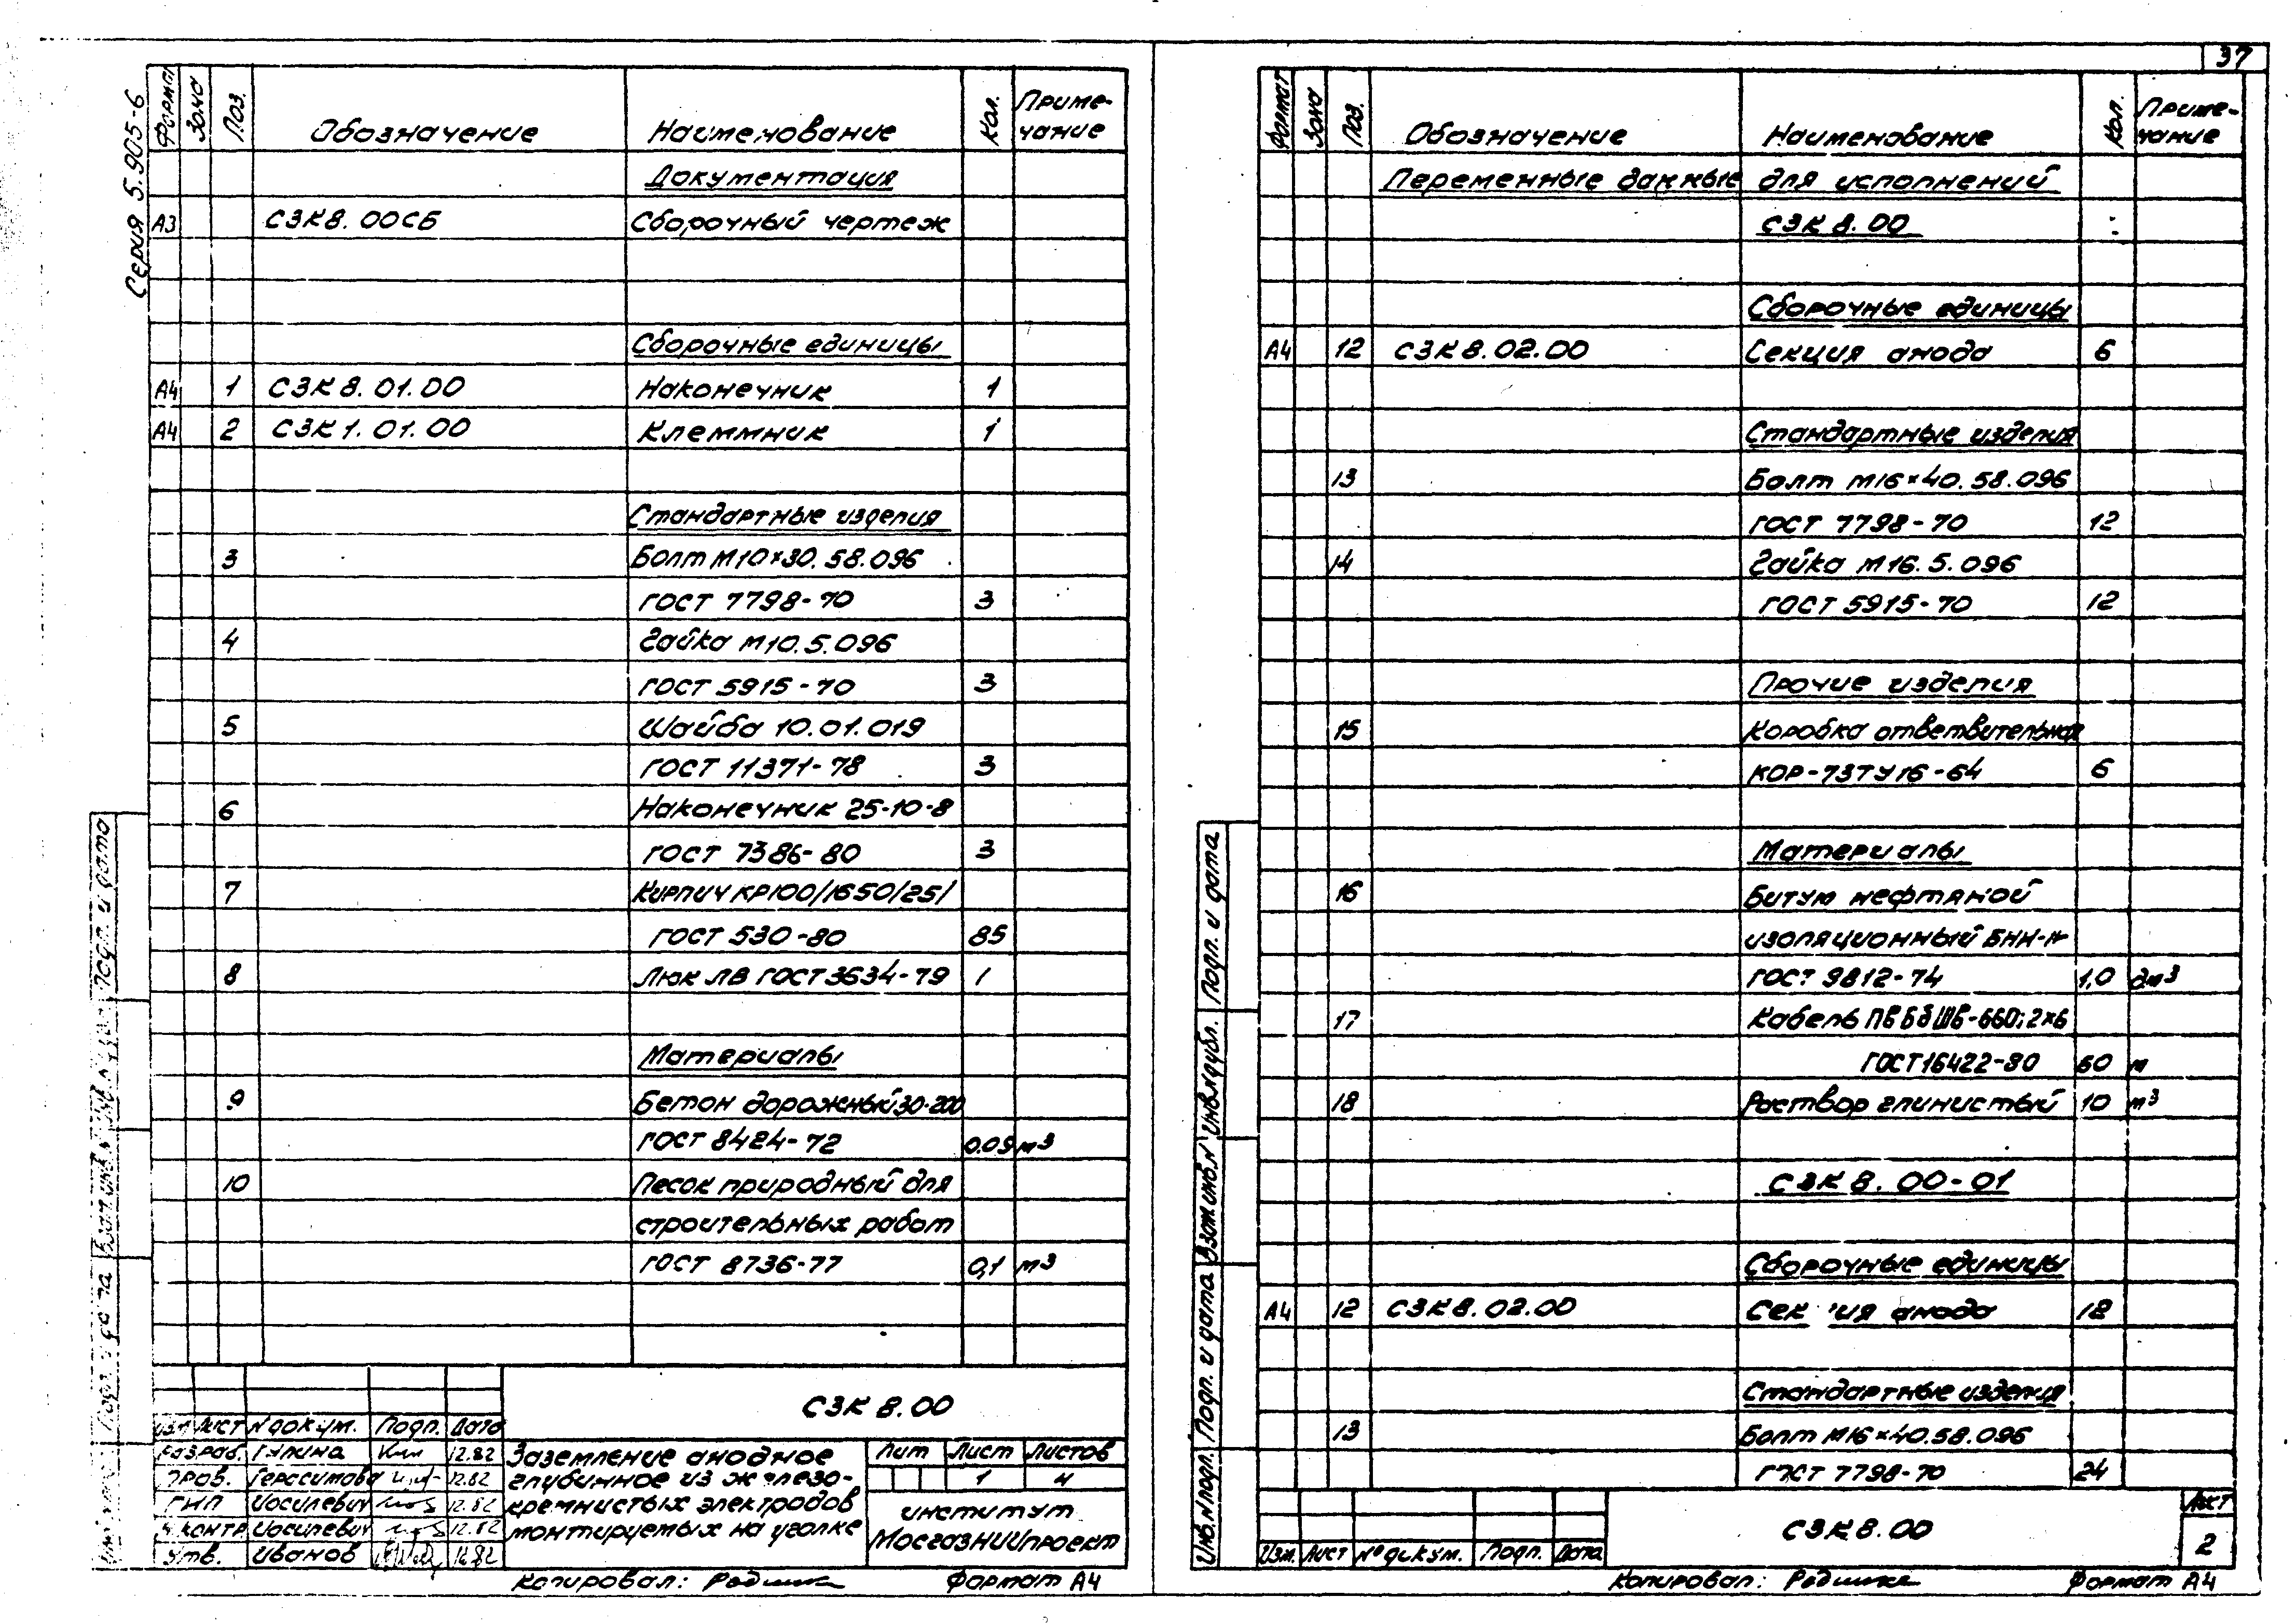 37
Серия 5.905-6
Формат Зона Поз. Обозначение Наименование Кол. Приме-
чание
Документация
А3 СЗК8.00СБ Сборочный чертеж
Сборочные единицы
А4 1 СЗК 8.01.00 Наконечник 1
А4 2 СЗК 1.01.00 Клеммник 1
Стандартные изделия
3 Болт М10×30.58.096
ГОСТ 7798-70 3
4 Гайка М10.5.096
ГОСТ 5915-70 3
5 Шайба 10.01.019
ГОСТ 11371-78 3
6 Наконечник 25-10-8
ГОСТ 7386-80 3
7 Кирпич КР100/1650/25/
ГОСТ 530-80 85
8 Люк ЛВ ГОСТ 3634-79 1
Материалы
9 Бетон дорожный 30-200
ГОСТ 8424-72 0.09 м3
10 Песок природный для
строительных работ
ГОСТ 8736-77 0,1 м3
СЗК 8.00
Изм Лист N докум. Подп. Дата
Разраб. Гулина 12.82
Пров. Герасимова 12.82
ГИП Иосилевич 12.82
Н.контр Иосилевич 12.82
Утв. Иванов 12.82
Заземление анодное
глубинное из железо-
кремнистых электродов
монтируемых на уголке
Лит Лист Листов
1 4
институт
МосгазНИИпроект
Копировал: Формат А4
Формат Зона Поз. Обозначение Наименование Кол. Приме-
чание
Переменные данные для исполнений
СЗК 8.00
Сборочные единицы
А4 12 СЗК 8.02.00 Секция анода 6
Стандартные изделия
13 Болт М16×40.58.096
ГОСТ 7798-70 12
14 Гайка М16.5.096
ГОСТ 5915-70 12
Прочие изделия
15 Коробка ответвительная
КОР-73ТУ16-64 6
Материалы
16 Битум нефтяной
изоляционный
ГОСТ 9812-74 1,0 дм3
17 Кабель ПВБбШв-660; 2×6
ГОСТ16422-80 60 м
18 Раствор глинистый 10 м3
СЗК 8.00-01
Сборочные единицы
А4 12 СЗК 8.02.00 Сек ия анода 18
Стандартные изделия
13 Болт М16×40.58.096
ГОСТ 7798-70 24
СЗК 8.00
Лист
2
Изм. Лист № докум. Подп. Дата
Инв.N подл. Подп. и дата Взам.инв.N Инв.N дубл. Подп. и дата
Копировал: Формат А4